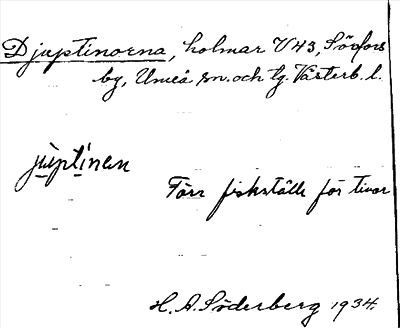 Djuptinoena, holmar V43, Sörfors
by, Umeå sn. och tg. Västerb. l.
juptinan
Förr fiskställe för tinor
H. A. Söderberg 1934.